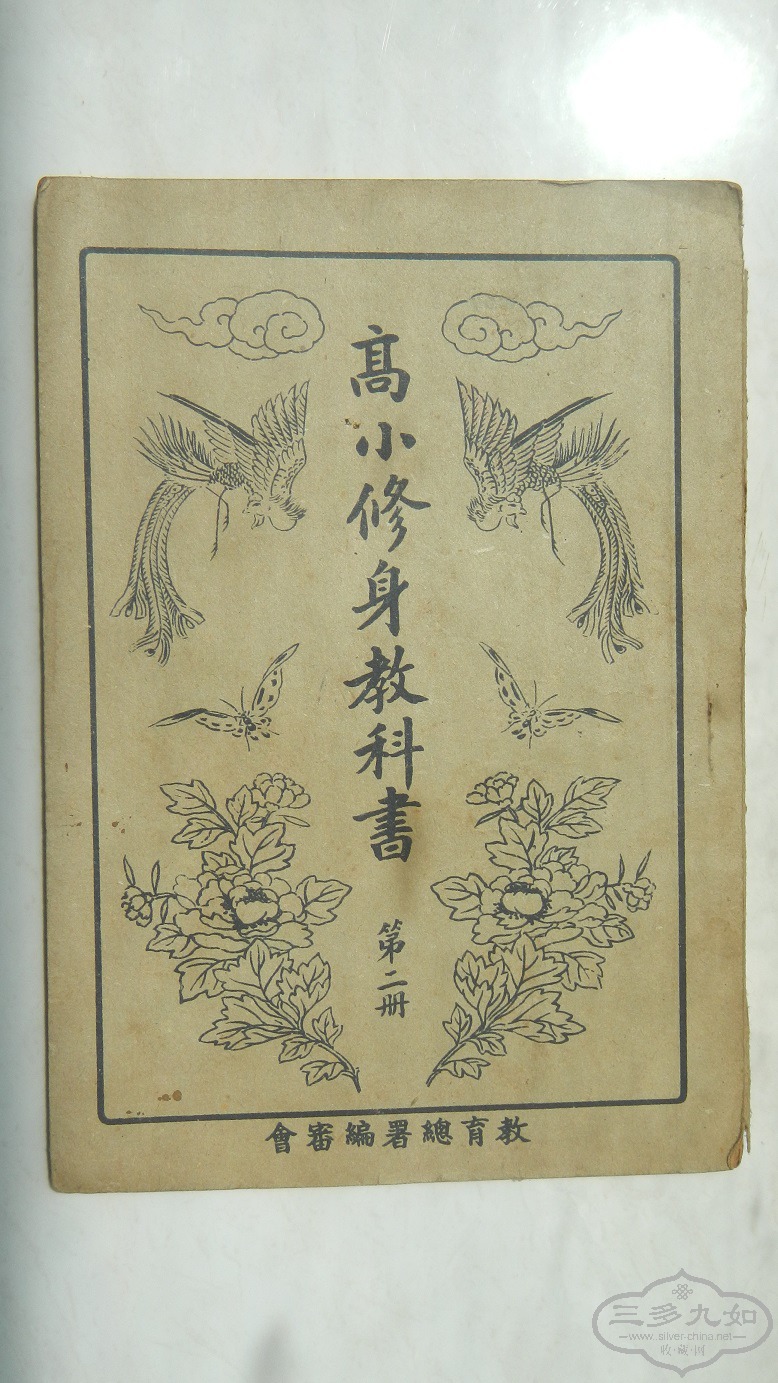 高小修身教科書
第二册
教育總署編審會
三多九如
www.silver-china.net
收·藏·网